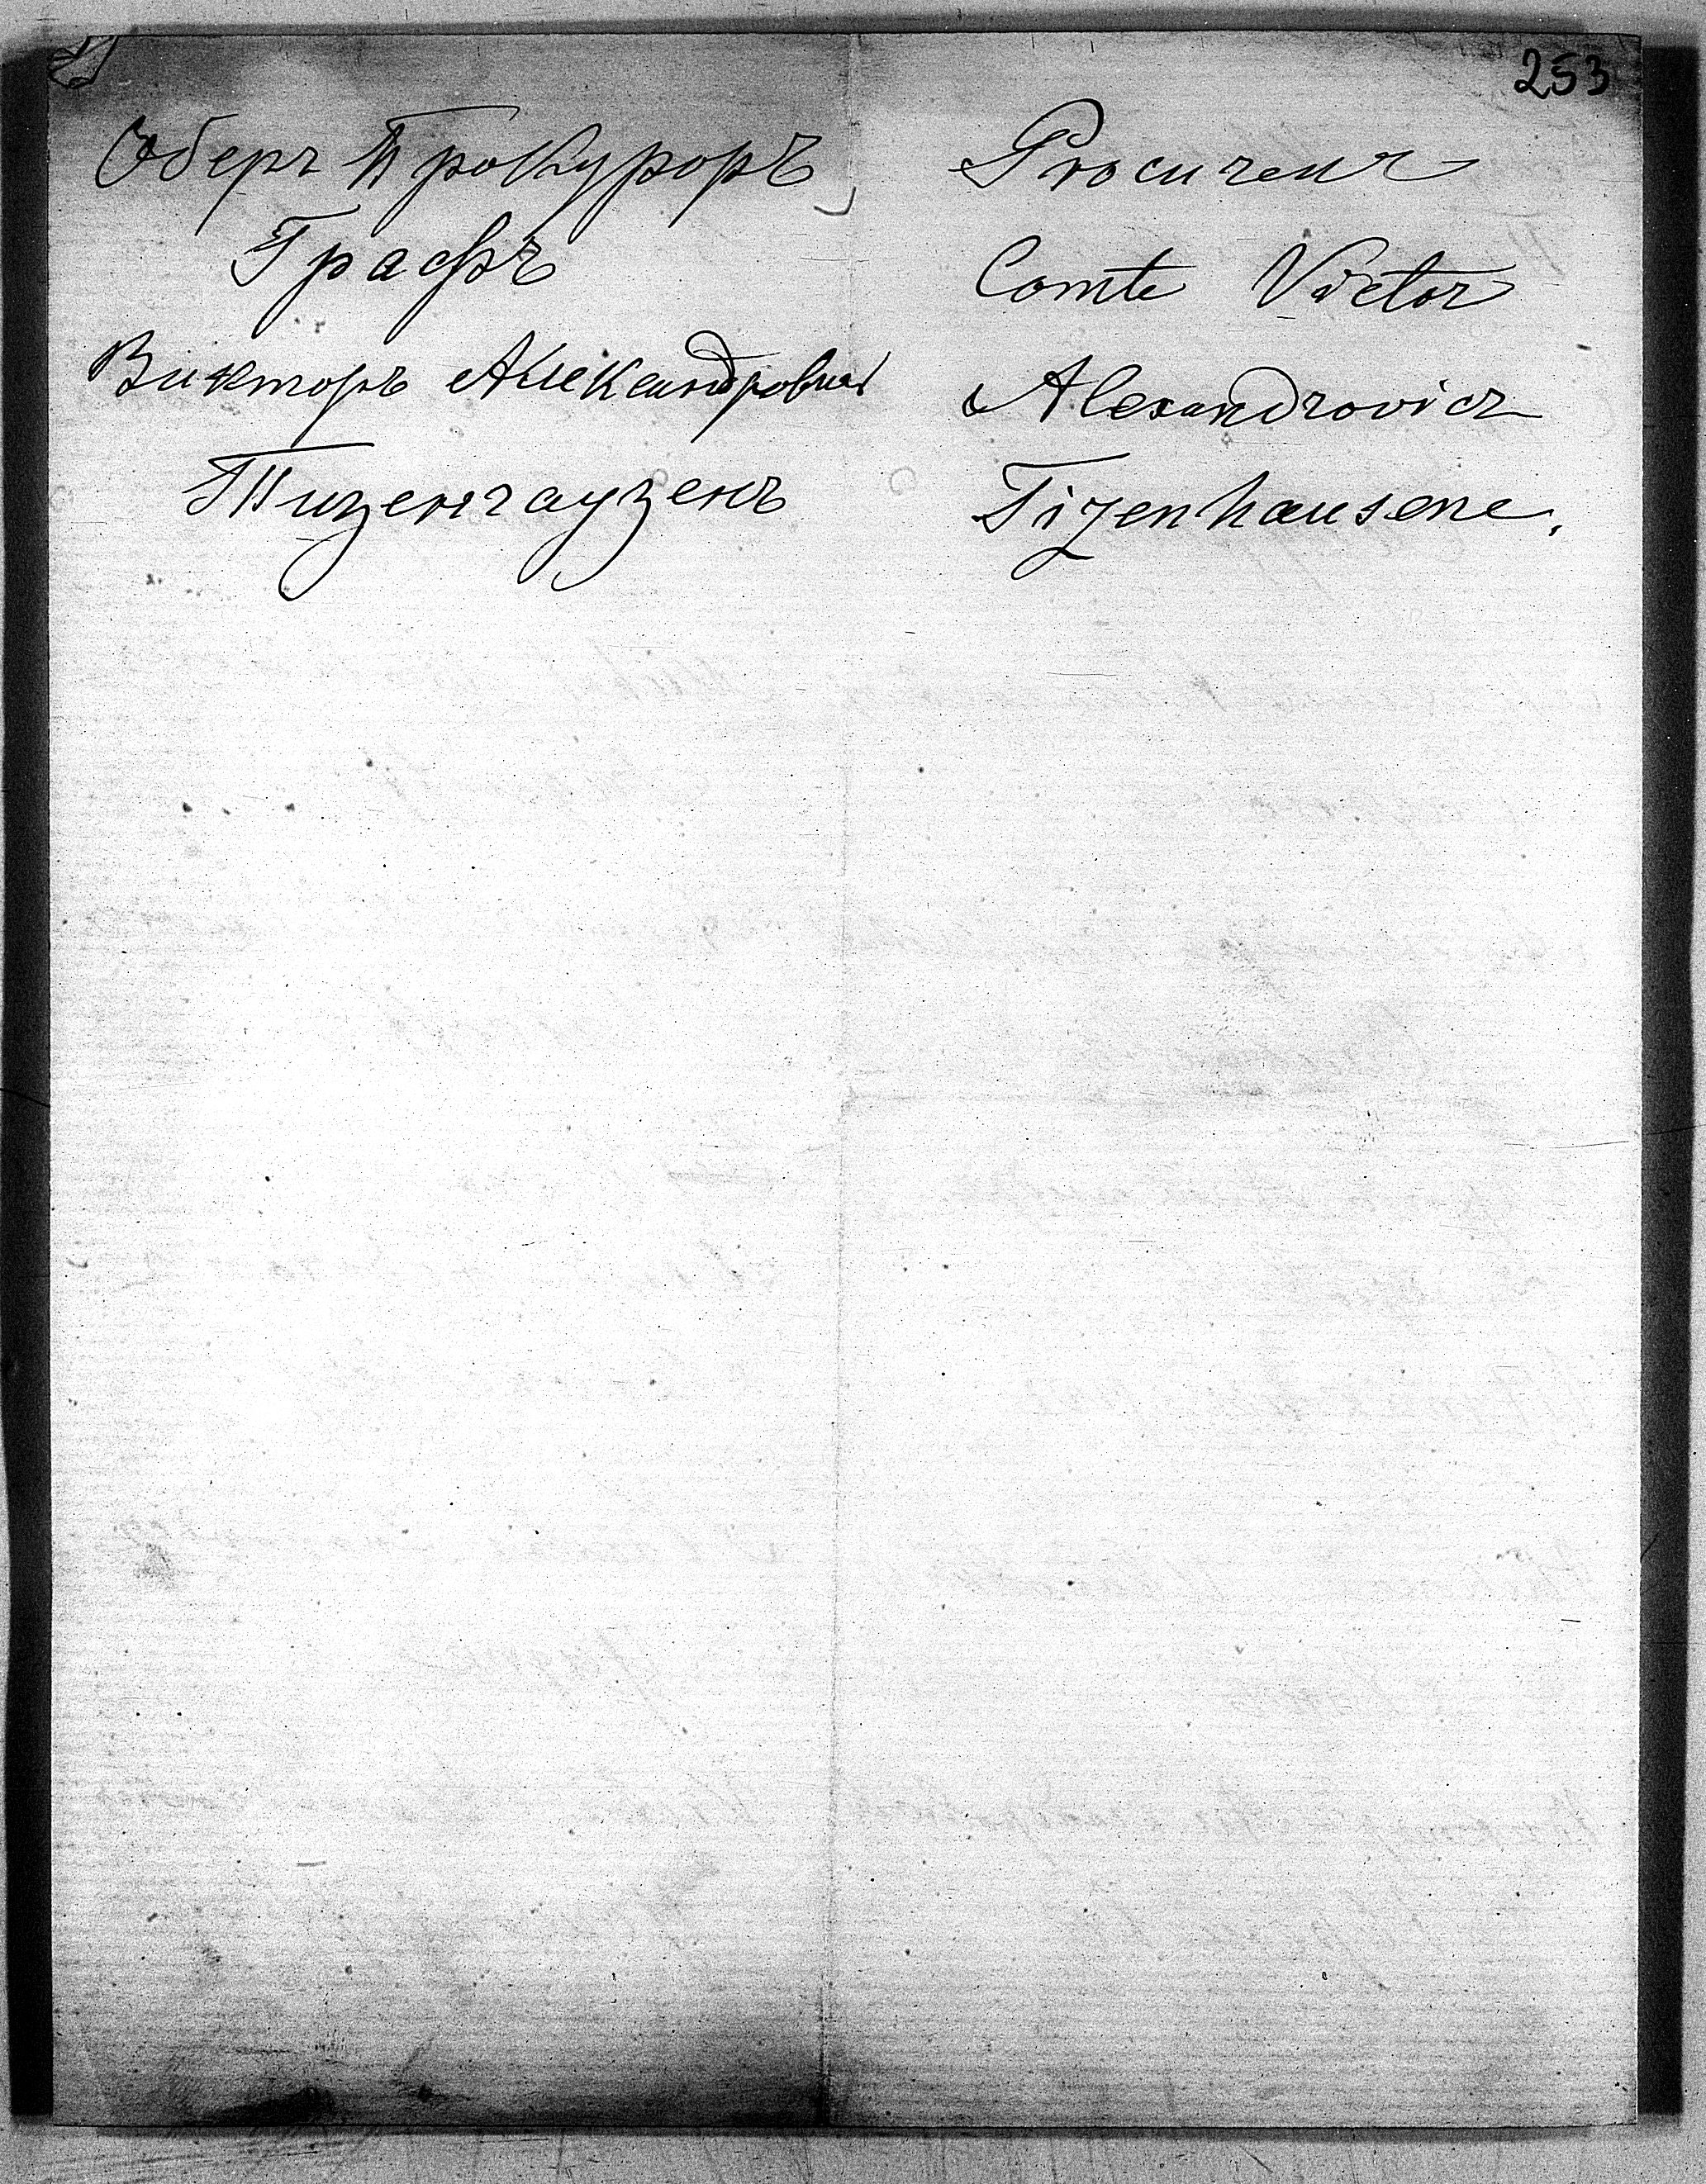 253
Оберъ Прокуроръ
Графъ
Викторъ Александровичъ
Тизенгаузенъ
Procureur
Comte Victor
Alexandrovicz
Tizenhausene.